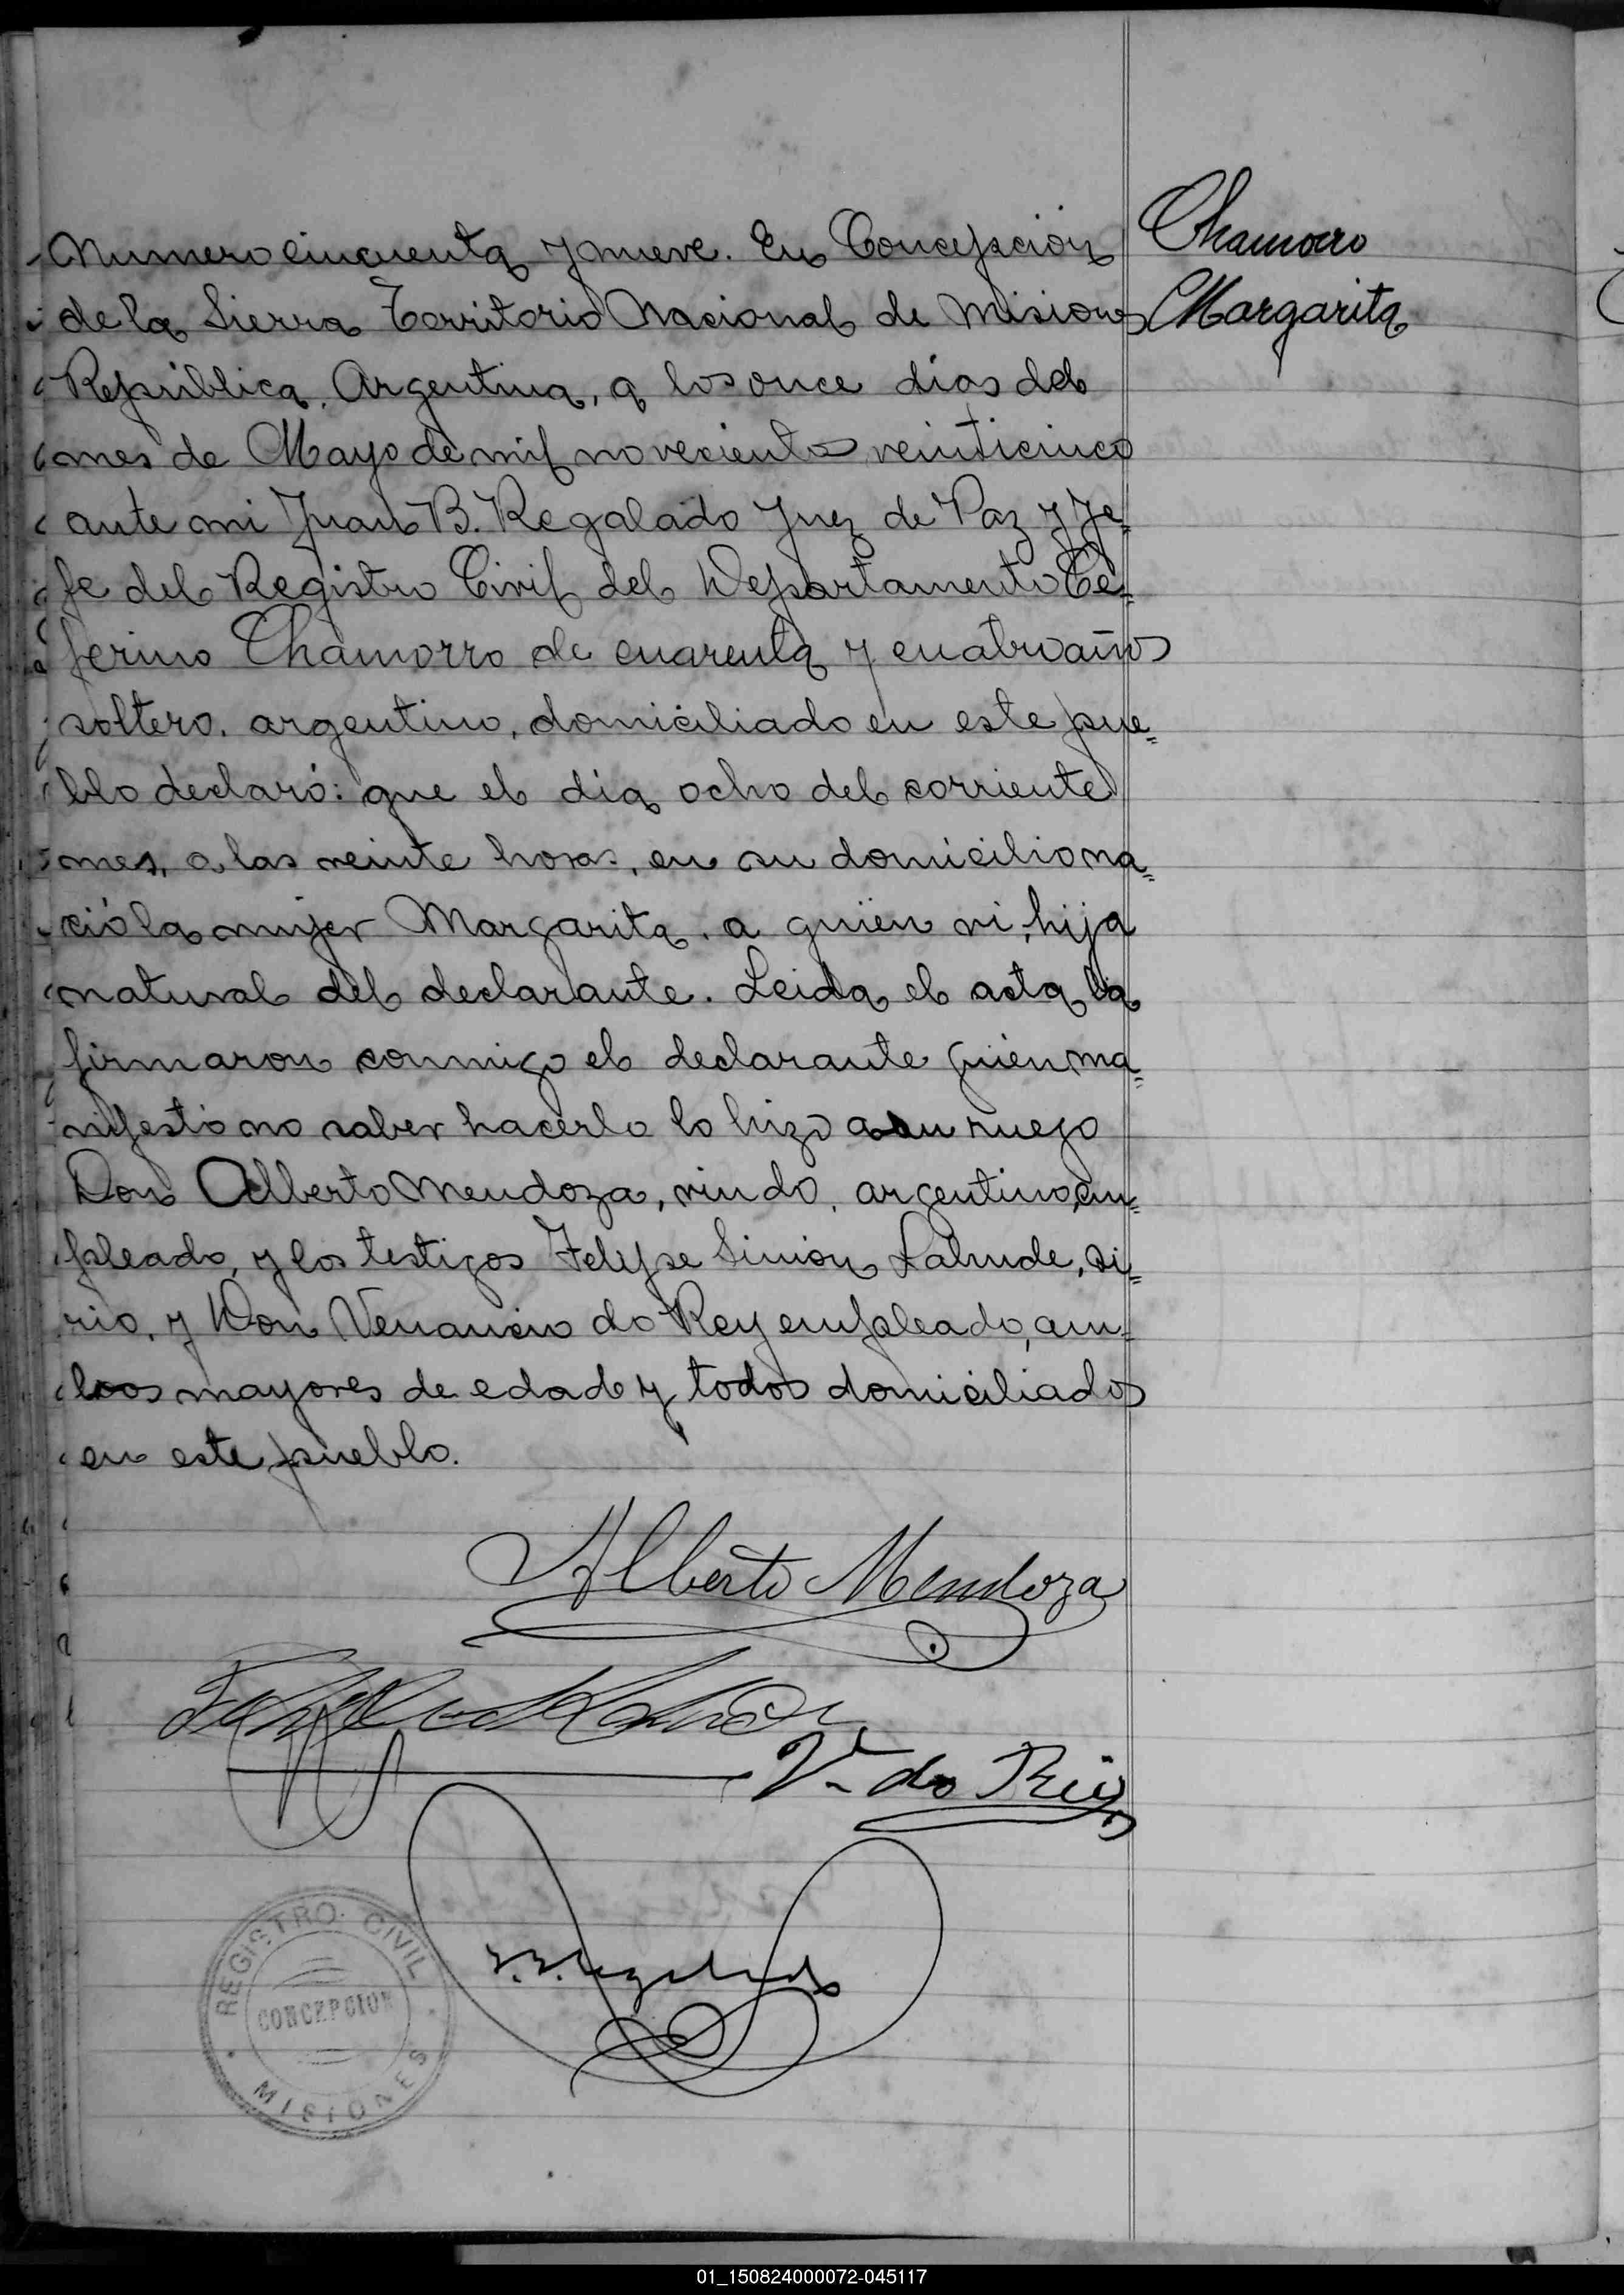 Chamorro
Margarita
Numero cincuenta y nueve. En Concepción
de la Sierra Territorio Nacional de Misiones
República Argentina, a los once dias del
mes de Mayo de mil novecientos veinticinco
ante mi Juan B. Regalado Juez de Paz y Je=
fe del Registro Civil del Departamento Ce=
ferino Chamorro de cuarenta y cuatro años
soltero, argentino, domiciliado en este pue=
blo declaró: que el dia ocho del corriente
mes, a las veinte horas, en su domicilio na=
ció la mujer Margarita, a quien vi, hija
natural del declarante. Leida el acta la
firmaron conmigo el declarante quien ma=
nifestó no saber hacerlo lo hizo a su ruego
Don Alberto Mendoza, viudo, argentino, em=
pleado, y los testigos Felipe Simón, si=
rio, y Don Venancio do Rey empleado, am=
bos mayores de edad y todos domiciliados
en este pueblo.
Alberto Mendoza
V. do Rey
REGISTRO CIVIL
CONCEPCION
MISIONES
01_150824000072-045117